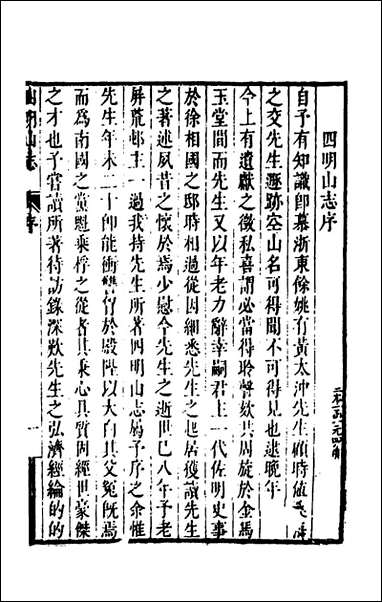 四明山志序
自予有知識即慕浙東餘姚有黃太沖先生顧時值
之交先生遯跡空山名可得聞不可得見也逮晚年
今上有遺獻之徵私喜謂必當得聆謦欬共周旋於金馬
玉堂間而先生又以年老力辭幸嗣君主一代佐明史事
於徐相國之邸時相過從因細悉先生之起居後讀先生
之著述夙昔之懷於焉少慰今先生之逝世巳八年予老
屏荒邨主一過我持先生所著四明山志屬予序之余惟
先生年未二十即能衝讐於殿陛以大白其父冤既焉
而為南國之黨魁乘桴之從者其秉心其質固經世豪傑
之才也予嘗讀所著待訪錄深歎先生之弘濟經綸的的
四明山志
序
一